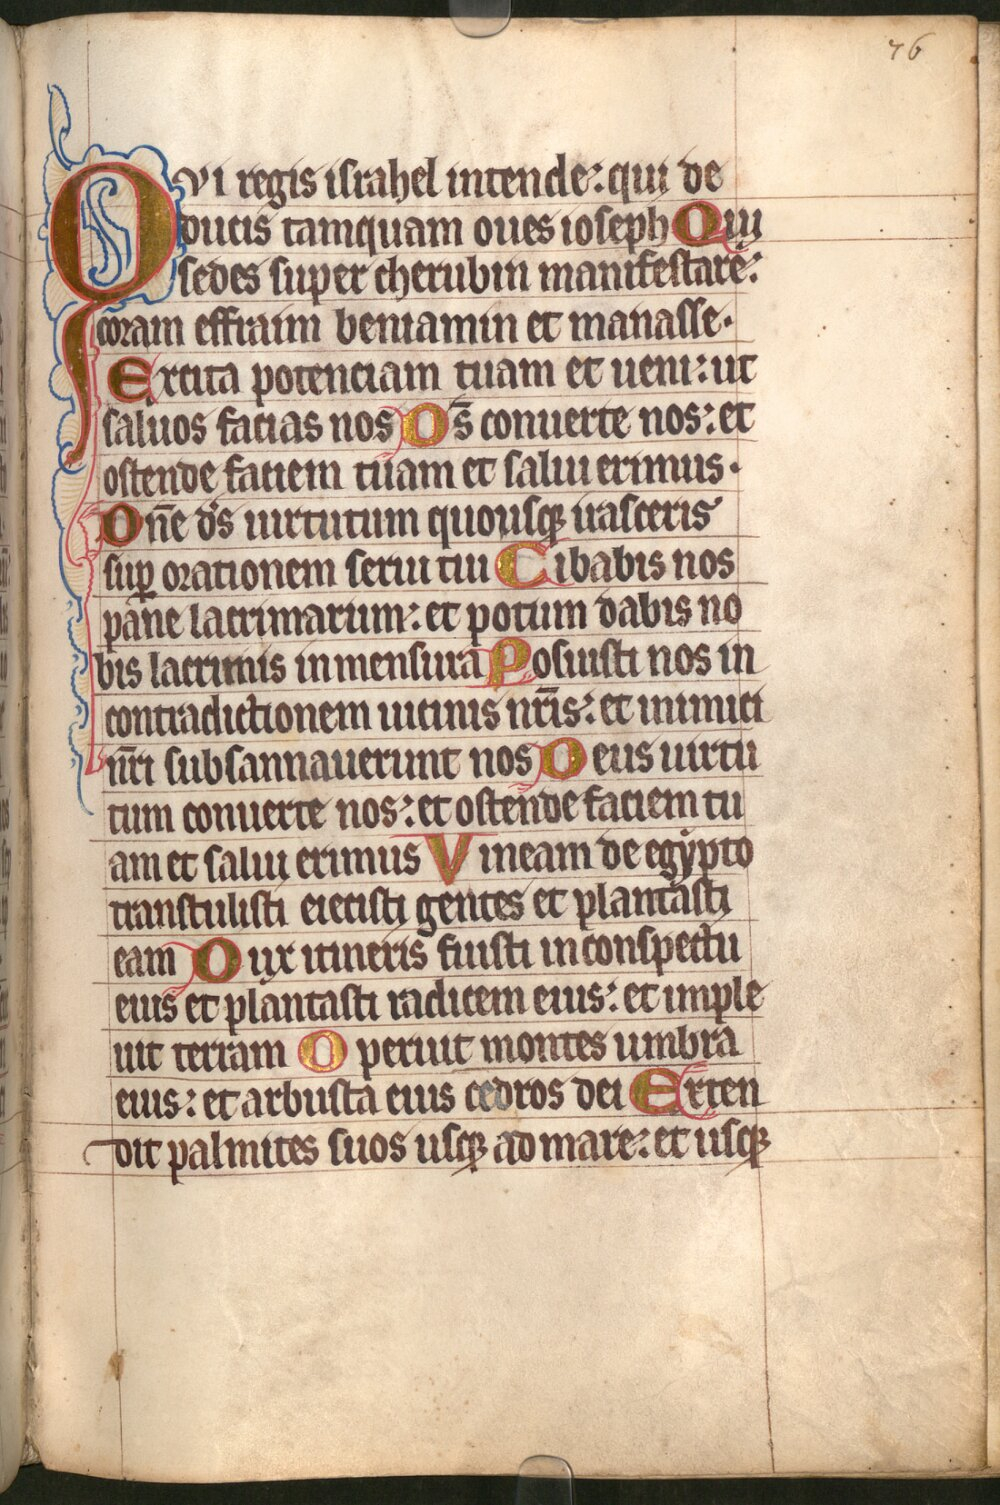 76
QVI regis israhel intende: qui de
ducis tamquam oues ioseph Qui
sedes super cherubin manifestare:
coram effraim beniamin et manasse.
Excita potenciam tuam et ueni: ut
saluos facias nos Ds̄ conuerte nos: et
ostende faciem tuam et salui erimus.
Dn̄e ds̄ uirtutum quousqꝫ irasceris
suꝑ orationem serui tui Cibabis nos
pane lacrimarum: et potum dabis no
bis lacrimis in mensura Posuisti nos in
contradictionem uicinis nr̄is: et inimici
nr̄i subsannauerunt nos Deus uirtu
tum conuerte nos: et ostende faciem tu
am et salui erimus Vineam de egypto
transtulisti eiecisti gentes et plantasti
eam Dux itineris fuisti in conspectu
eius et plantasti radicem eius: et imple
uit terram Operuit montes umbra
eius: et arbusta eius cedros dei Exten
dit palmites suos usqꝫ ad mare: et usqꝫ